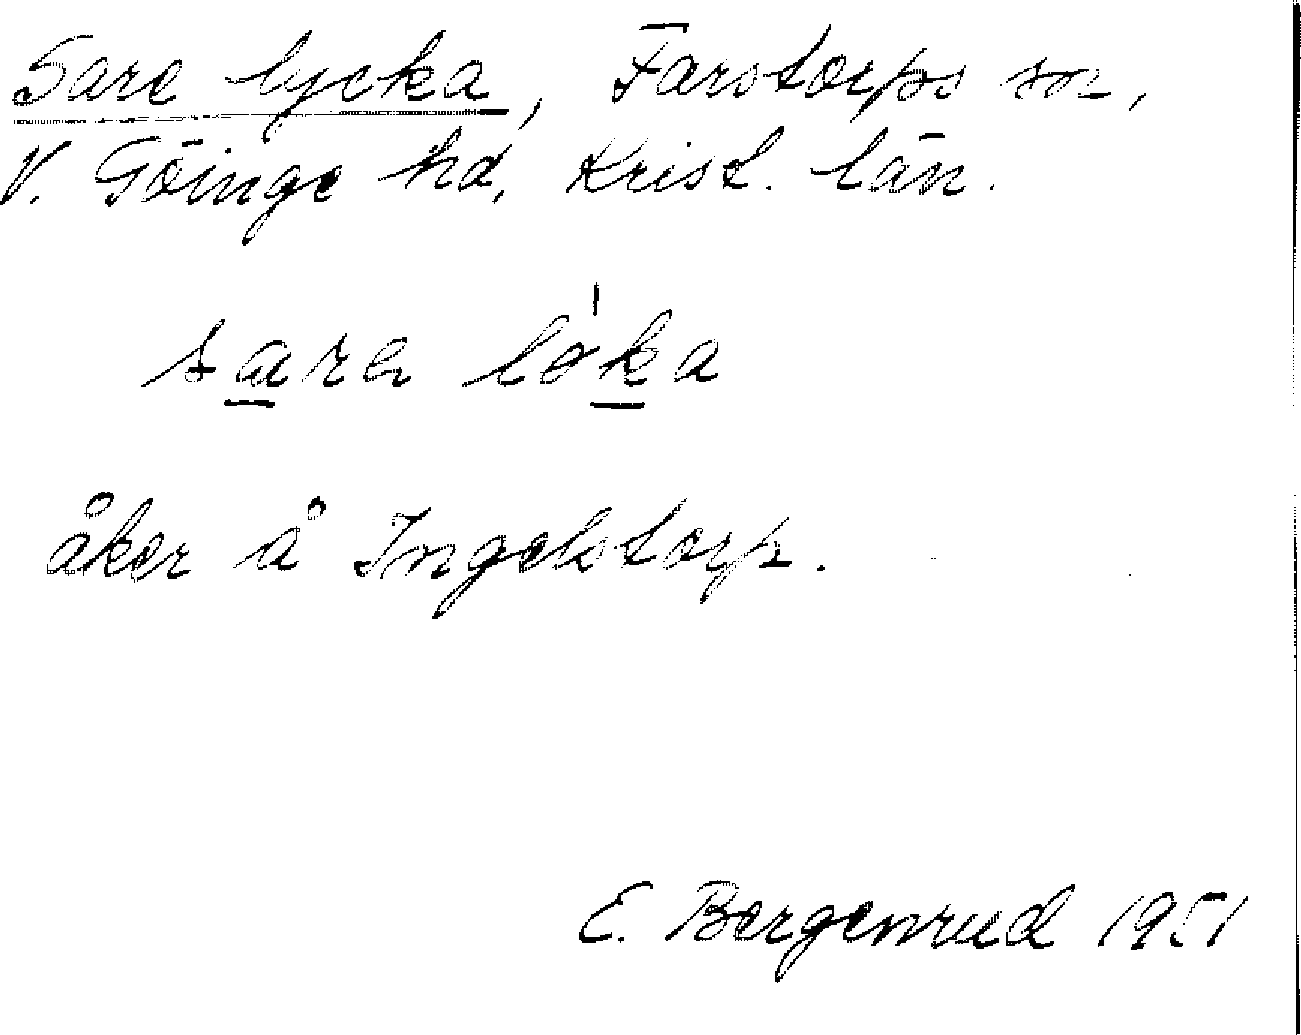 Sare lycka, Farstorps sn,
V. Göinge hd, Krist. län.
sarə lo̍ka
åker å Ingelstorp.
E. Bergenrud 1951